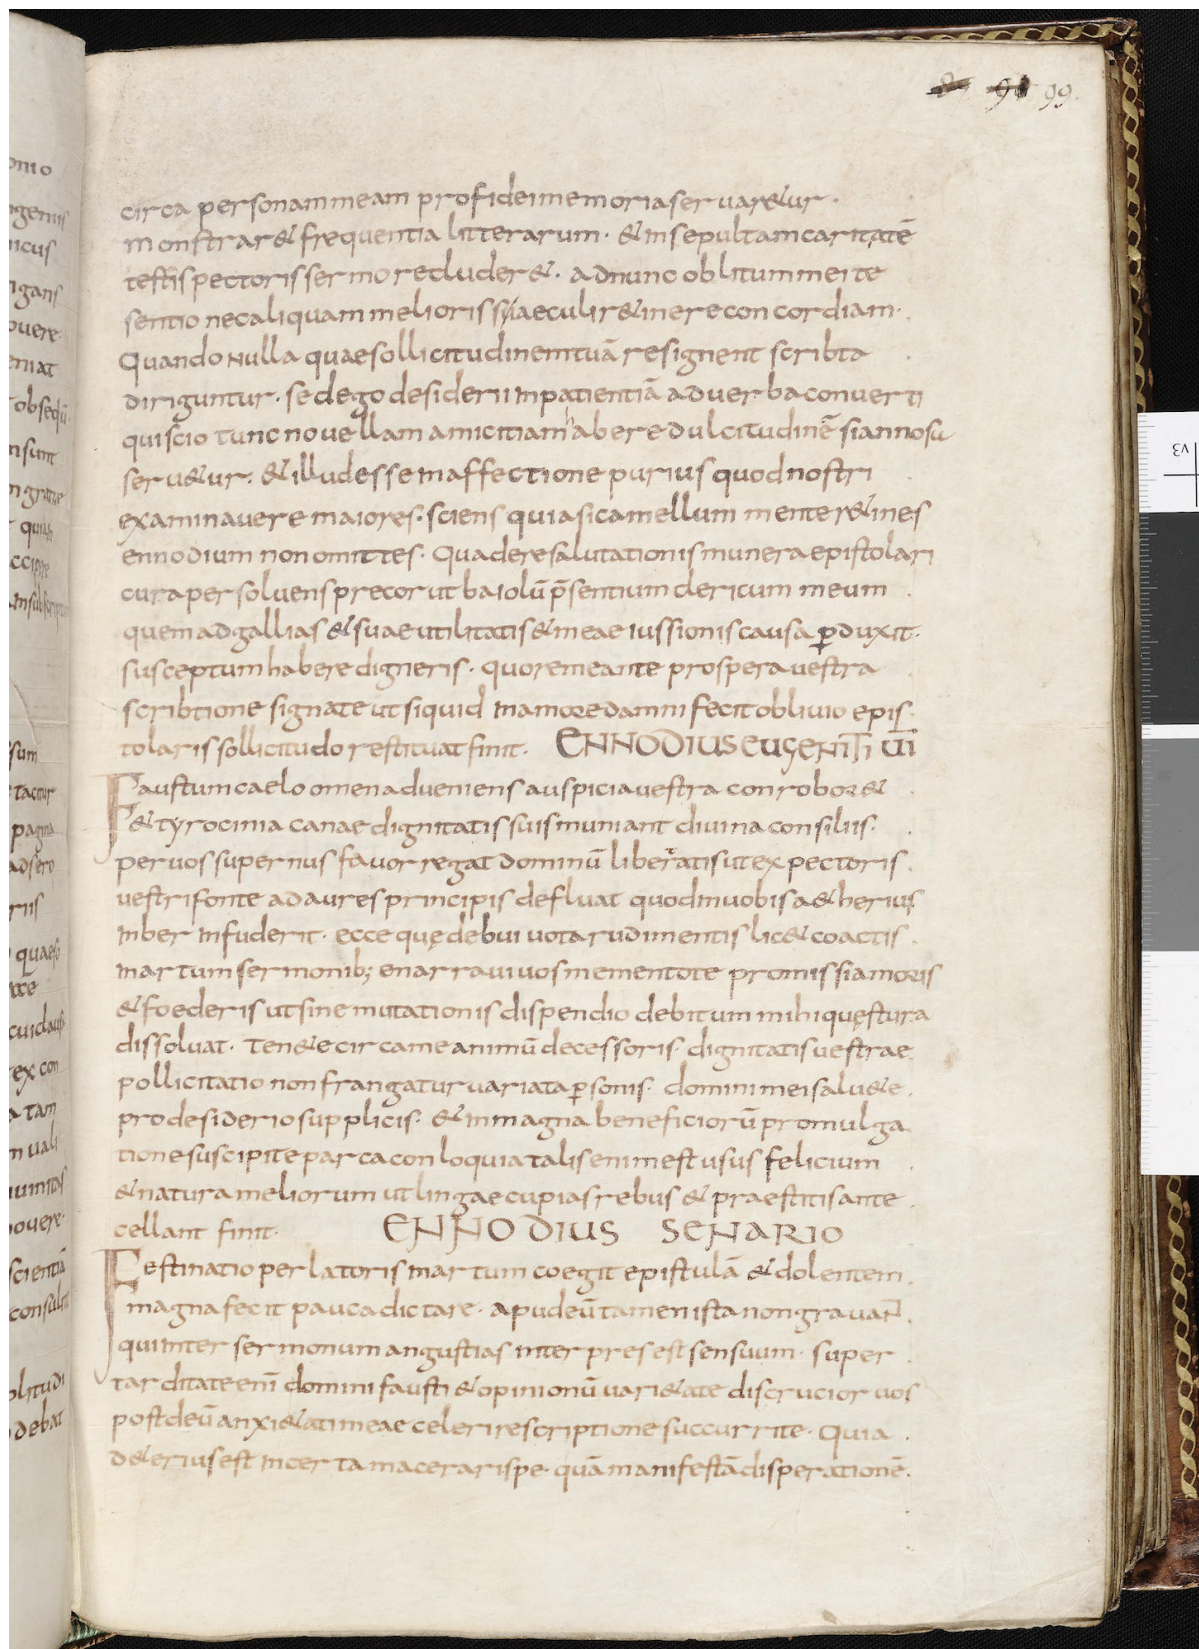 99.
circa personam meam pro fidei memoria servar&ur.
monstrar& frequentia litterarum. & insepultam caritatē
testis pectoris sermo recluder&. ad nunc oblitum mei te
sentio nec aliquam melioris saeculi r&inere concordiam.
Quando nulla quae sollicitudinem tuā resignent scribta
diriguntur. sed ego desiderii inpatientiā ad verba converti
qui scio tunc novellam amicitiam habere dulcitudinē si annosa
serv&ur: & illud esse in affectione purius quod nostri
examinavere maiores. sciens quia si camellum mente r&ines
ennodium non omittes. Qua de re salutationis munera epistolari
cura persolvens precor ut baiolū p̄sentium clericum meum
quem ad gallias & suae utilitatis & meae iussionis causa ꝑduxit.
susceptum habere digneris. quo remeante prospera vestra
scribtione signate ut siquid in amore damni fecit oblivio epis
tolaris sollicitudo restituat finit. ENNODIUS EUGENETI VI
Faustum caelo omen adveniens auspicia vestra conrobor&
& tyrocinia canae dignitatis suis muniant divina consiliis.
per vos supernus favor regat dominū liberatis ut ex pectoris
vestri fonte ad aures principis defluat quod in vobis a&herius
inber infuderit. ecce quę debui vota rudimentis lic& coactis
in artum sermonib; enarravi vos mementote promissi amoris
& foederis ut sine mutationis dispendio debitum mihi quęstura
dissolvat. Ten&e circa me animū decessoris. dignitatis vestrae
pollicitatio non frangatur variata ꝑsonis. domini mei salv&e
pro desiderio supplicis. & in magna beneficiorū promulga
tione suscipite parca conloquia talis enim est usus felicium
& natura meliorum ut lingae cupias rebus & praestitis ante
cellant finit. ENNODIUS SENARIO
Festinatio perlatoris in artum coegit epistulā & dolentem
magna fecit pauca dictare. apud eū tamen ista non gravant̄
qui inter sermonum angustias interpres est sensuum. super
tarditate enī domini fausti & opinionū vari&ate discrucior vos
post deū anxi&ati meae celeri rescriptione succurrite. Quia
d&erius est incerta macerari spe. quā manifestā disperationē.